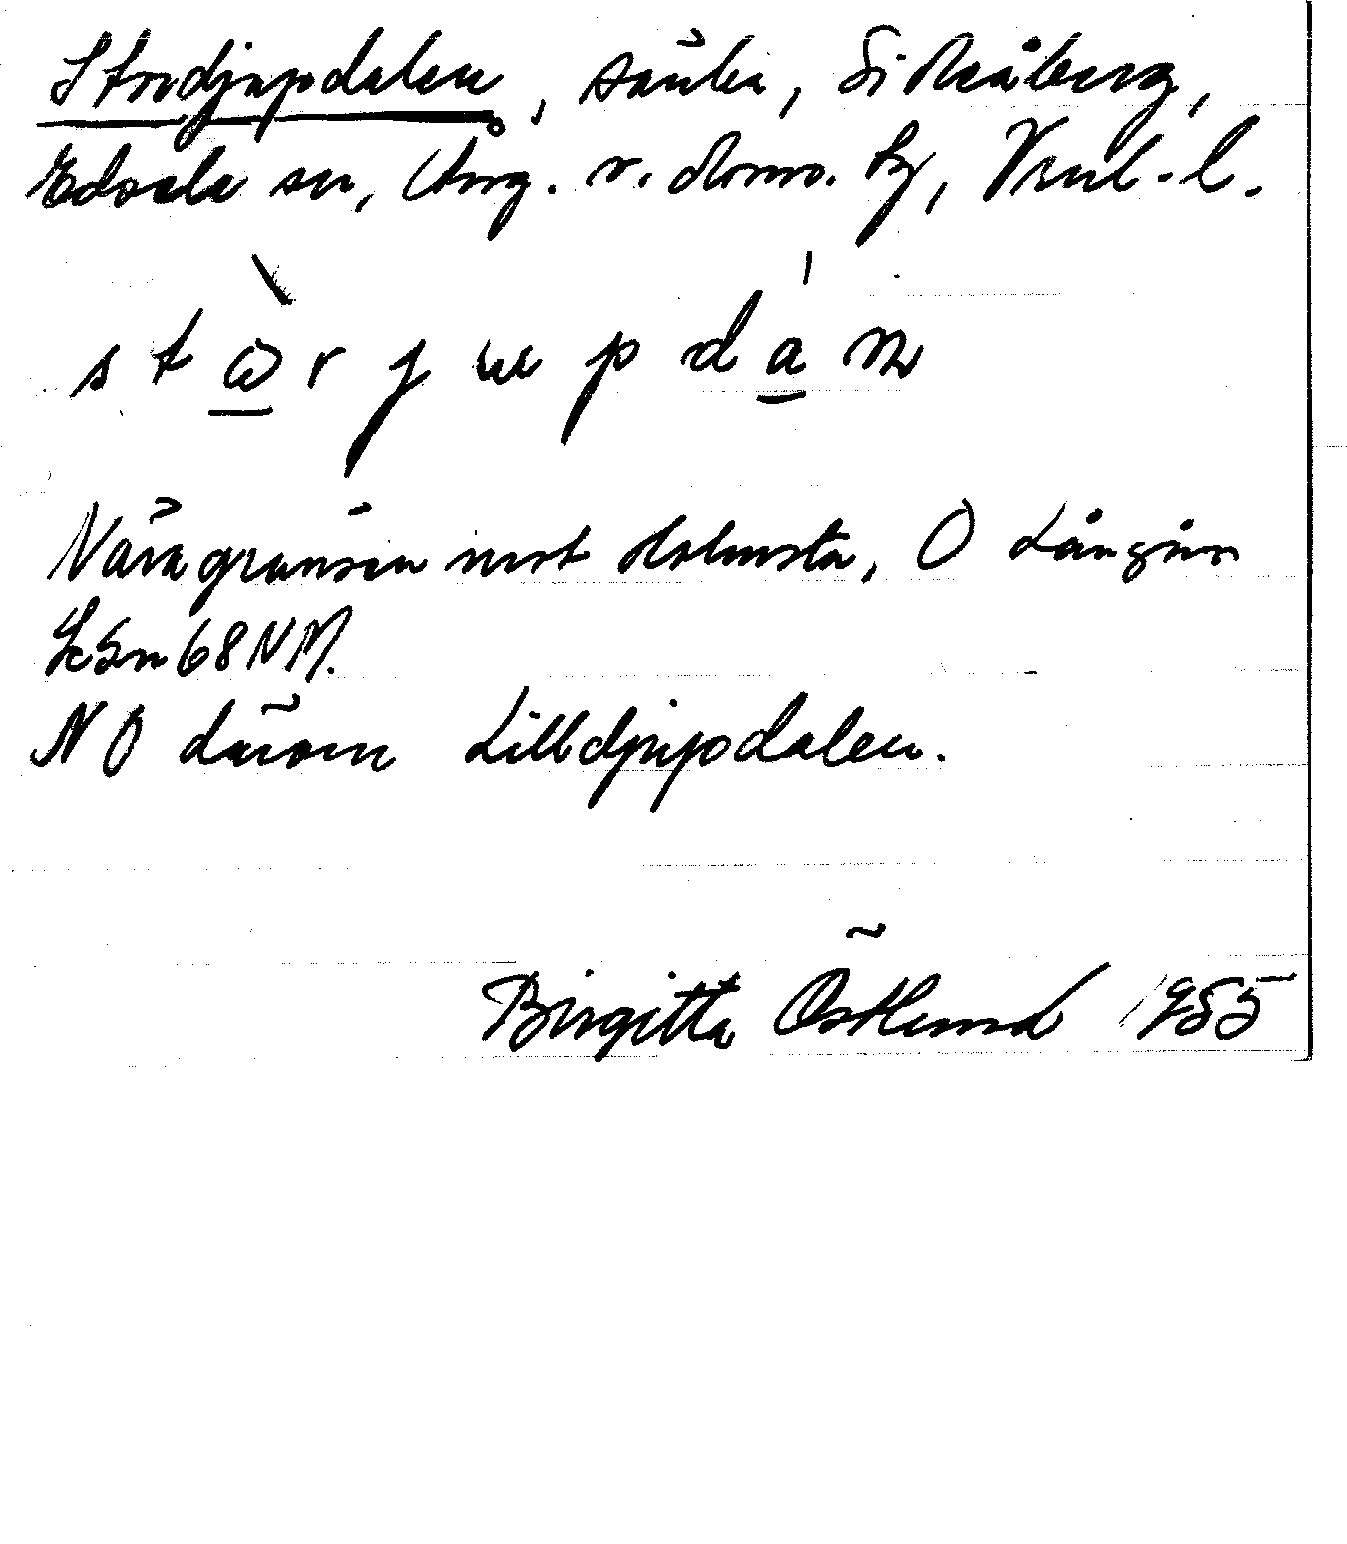 Stordjupdalen, sänka, Sikråberg,
Edsele sn, Ång. v. doms. tg, Vnl. l.
stὼrjupdán
Nära gränsen mot Holmsta, O Långån
LSn68NM.
NO därom Lilldjupdalen.
Birgitta Östlund 1955